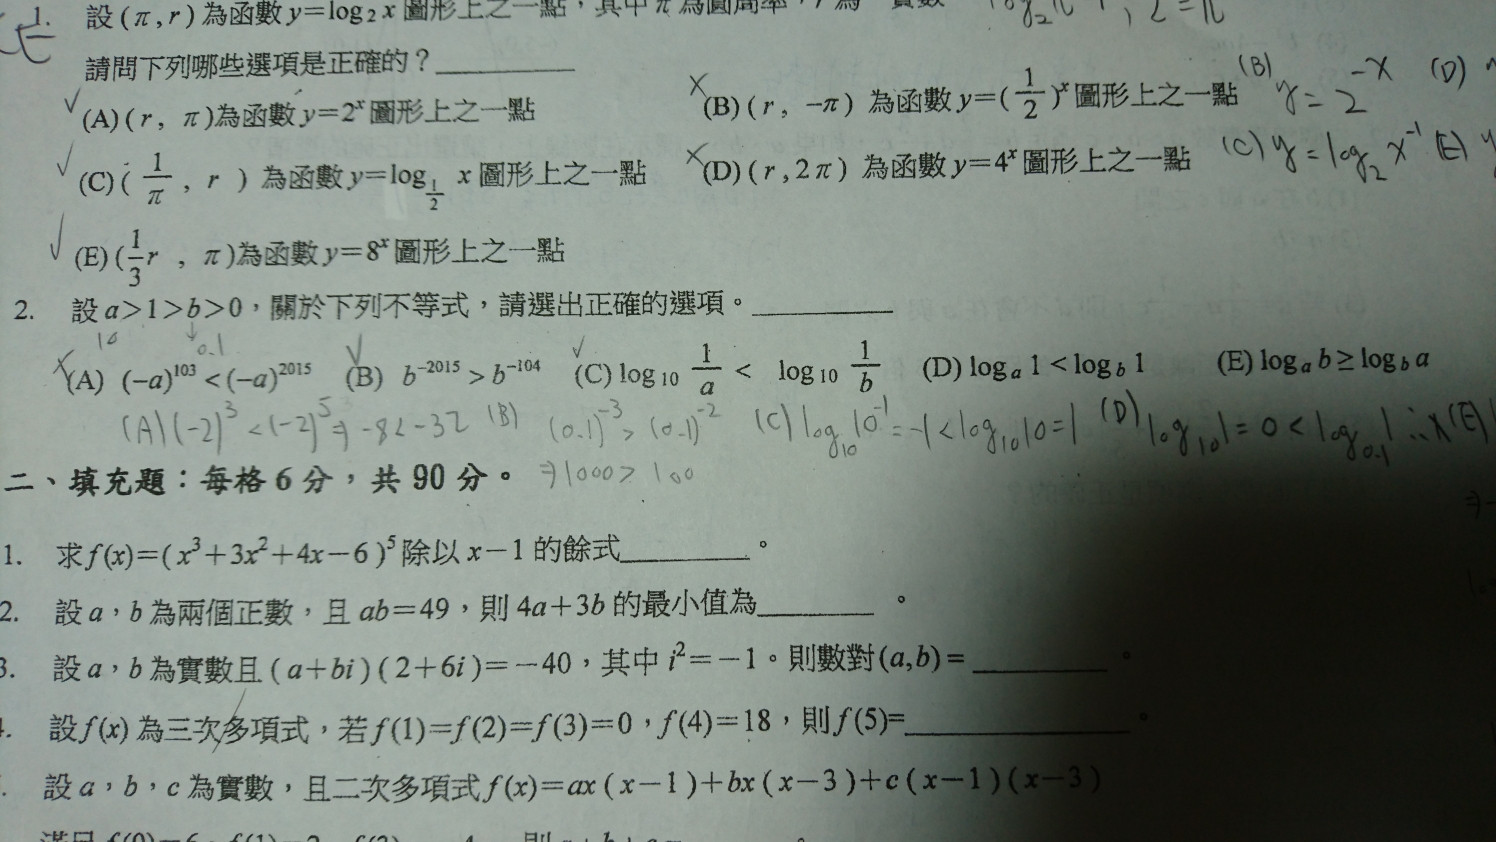 1. 設(π,r)為函數y=log₂ x 圖形上之一點，其中π為圓周率，r為一實數
請問下列哪些選項是正確的？
✓(A)(r, π)為函數y=2ˣ圖形上之一點 ×(B)(r, −π) 為函數y=(1/2)ˣ圖形上之一點 (B) y=2^-x (D)
✓(C)(1/π, r) 為函數y=log_{1/2} x 圖形上之一點 ×(D)(r,2π) 為函數y=4ˣ圖形上之一點 (C) y=log₂x⁻¹ (E) y
✓(E)(1/3 r, π)為函數y=8ˣ圖形上之一點
2. 設a>1>b>0，關於下列不等式，請選出正確的選項。
10 ↓0.1
×(A) (−a)¹⁰³<(−a)²⁰¹⁵ ✓(B) b⁻²⁰¹⁵>b⁻¹⁰⁴ ✓(C) log₁₀ 1/a < log₁₀ 1/b (D) logₐ1<log_b 1 (E) logₐb≥log_b a
(A) (-2)³<(-2)⁵⇒-8<-32 (B) (0.1)⁻³>(0.1)⁻² (C) log₁₀10⁻¹=-1<log₁₀10=1 (D) log₁₀1=0<log₀.₁1∴× (E)
⇒1000>100
二、填充題：每格6分，共90分。
1. 求f(x)=(x³+3x²+4x−6)⁵除以x−1的餘式______。
2. 設a，b為兩個正數，且ab=49，則4a+3b的最小值為______。
3. 設a，b為實數且(a+bi)(2+6i)=−40，其中i²=−1。則數對(a,b)=______。
設f(x)為三次多項式，若f(1)=f(2)=f(3)=0，f(4)=18，則f(5)=______。
設a，b，c為實數，且二次多項式f(x)=ax(x−1)+bx(x−3)+c(x−1)(x−3)